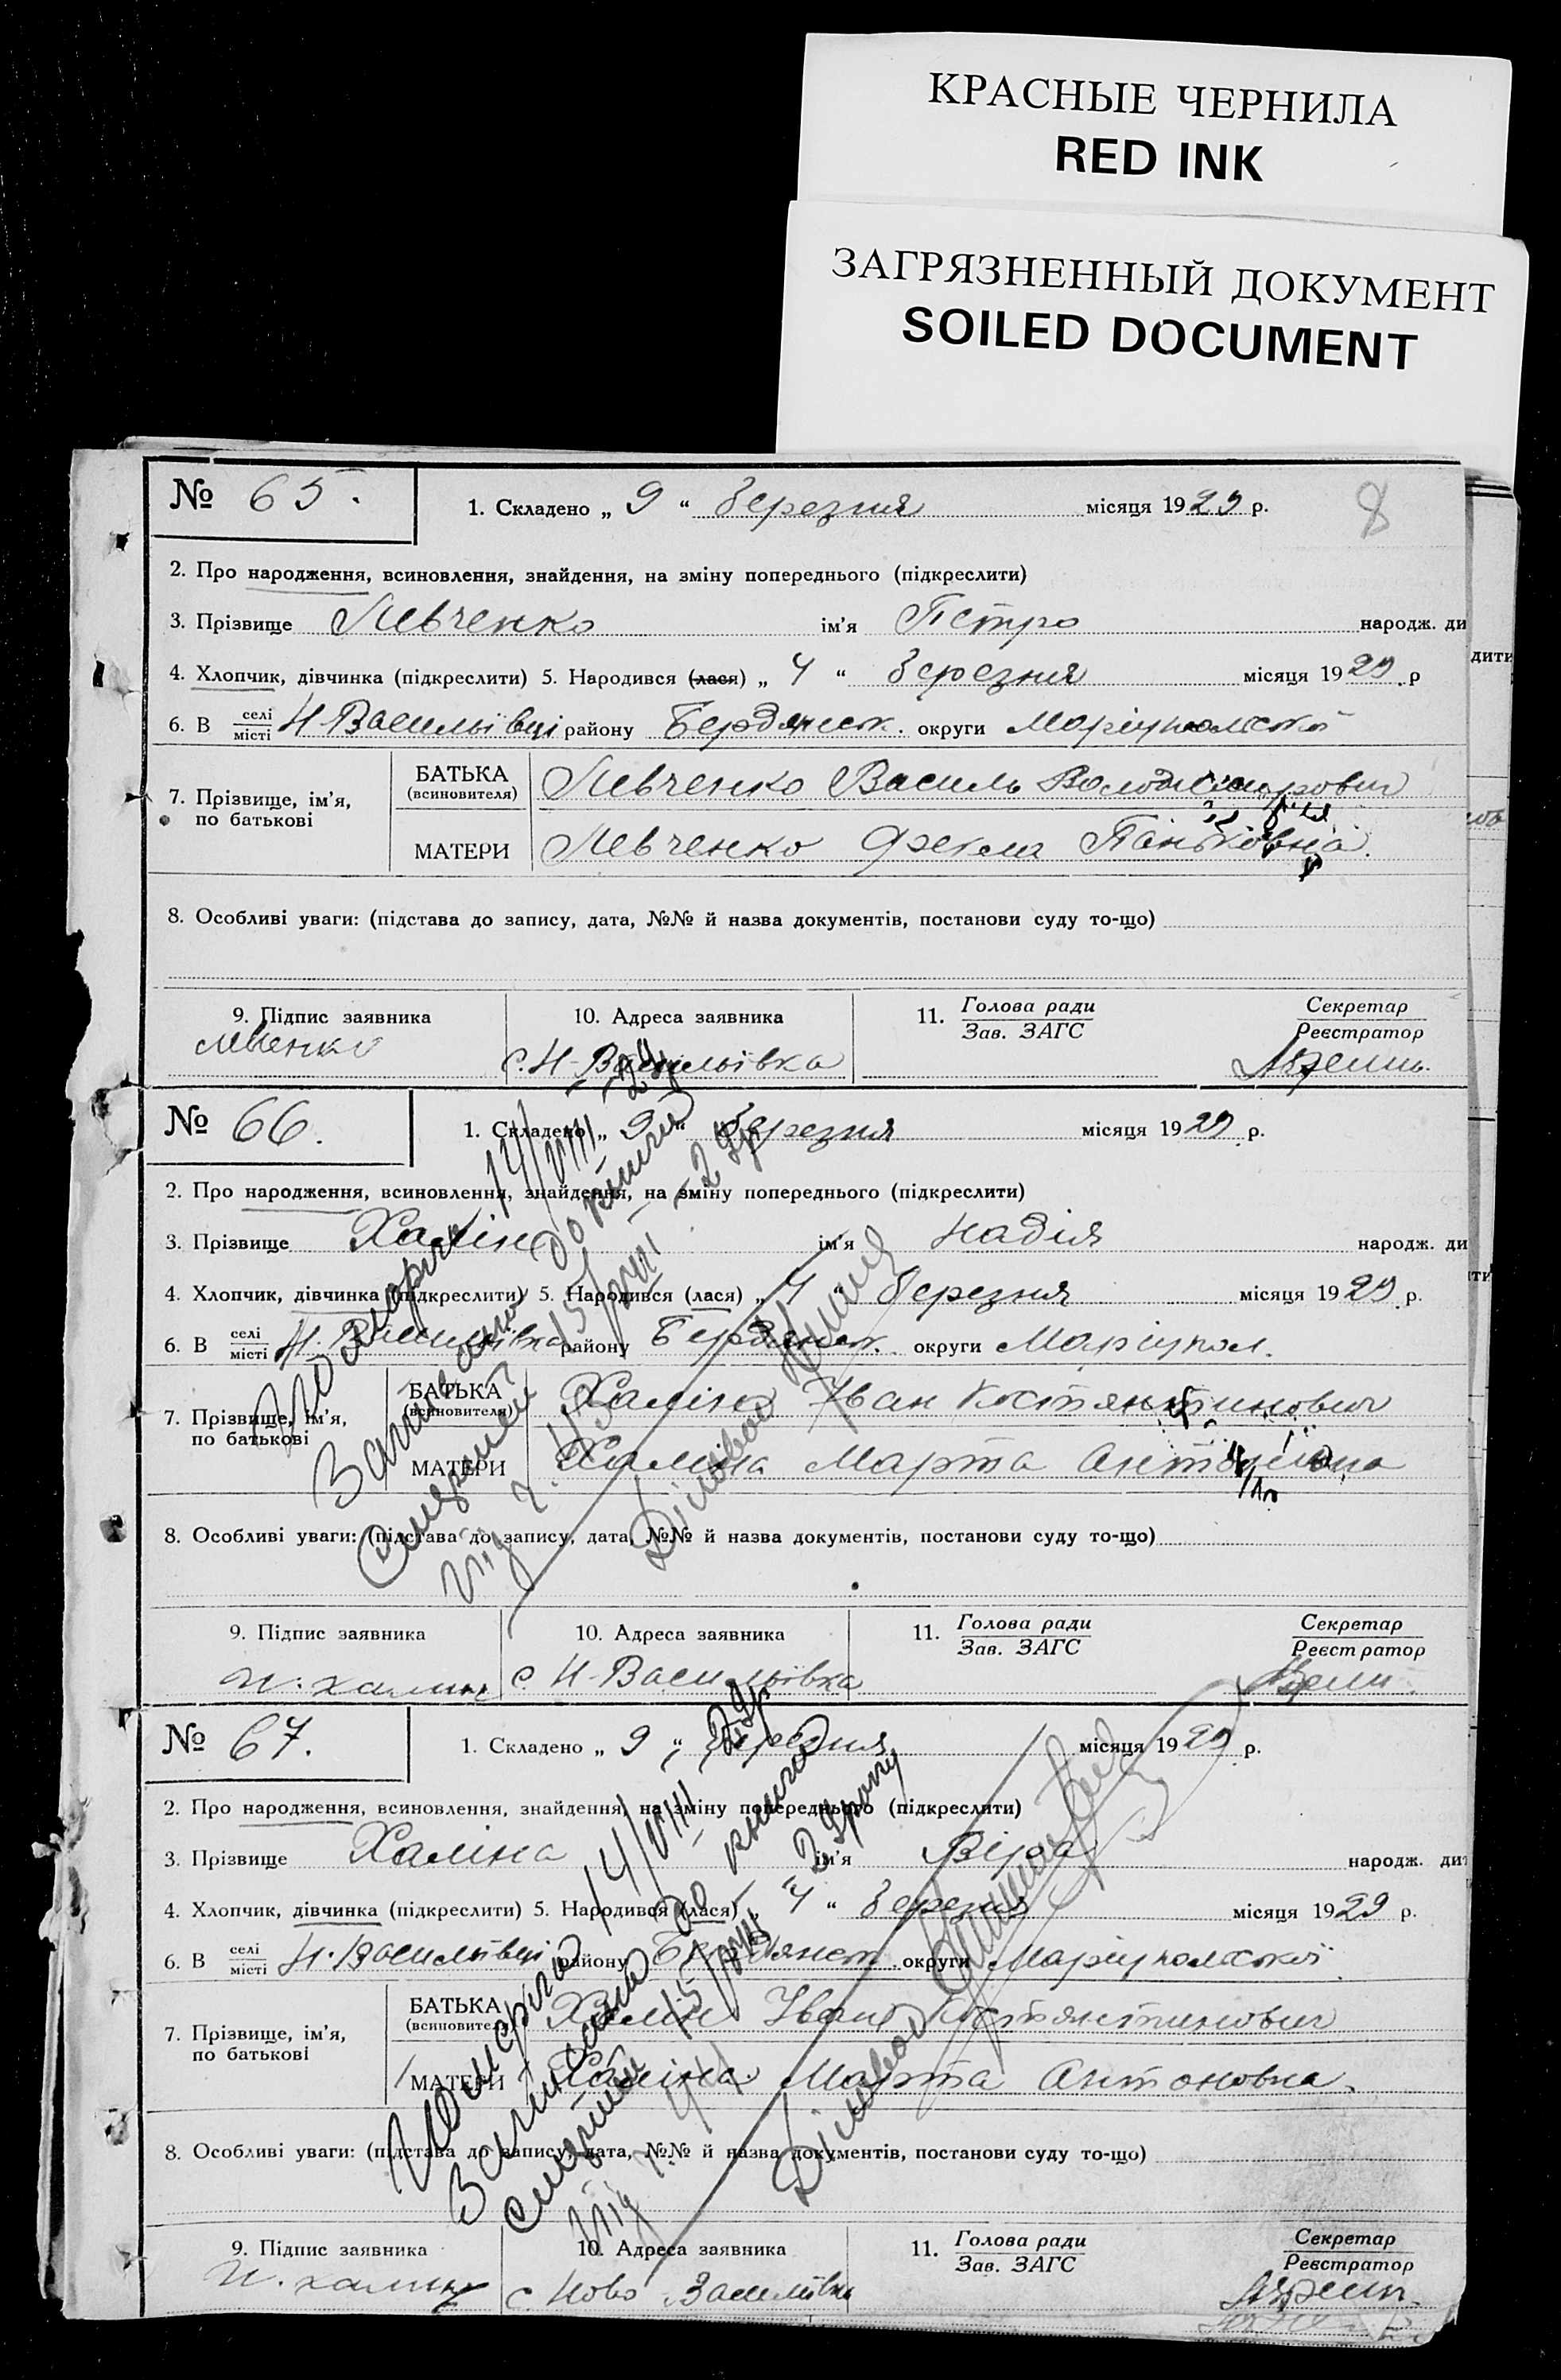 КРАСНЫЕ ЧЕРНИЛА
RED INK
ЗАГРЯЗНЕННЫЙ ДОКУМЕНТ
SOILED DOCUMENT
№ 65. 1. Складено „ 9 “ березня місяця 1929 р. 8
2. Про народження, всиновлення, знайдення, на зміну попереднього (підкреслити)
3. Прізвище Левченко ім'я Петро народж. ди
4. Хлопчик, дівчинка (підкреслити) 5. Народився (лася) „ 4 “ березня місяця 1929 р
6. В селі місті Н-Васильівці району Бердянськ. округи Маріупольської
7. Прізвище, ім'я, по батькові БАТЬКА (всиновителя) Левченко Василь Володимирович
МАТЕРИ Левченко Фекла
8. Особливі уваги: (підстава до запису, дата, №№ й назва документів, постанови суду то-що)
9. Підпис заявника 10. Адреса заявника 11. Голова ради Зав. ЗАГС Секретар Реєстратор
с. Н-Васильівка
№ 66. 1. Складено „ 9 “ березня місяця 1929 р.
2. Про народження, всиновлення, знайдення, на зміну попереднього (підкреслити)
3. Прізвище Халіна ім'я Надія народж. ди
4. Хлопчик, дівчинка (підкреслити) 5. Народився (лася) „ 4 “ березня місяця 1929 р.
6. В селі місті Н. Васильівка району Бердянськ. округи Маріупол.
7. Прізвище, ім'я, по батькові БАТЬКА (всиновителя) Халін Іван Костянтинович
МАТЕРИ Халіна Марта
8. Особливі уваги: (підстава до запису, дата, №№ й назва документів, постанови суду то-що)
Померла 14/VIII-29р
Записано до книги
смертей 15/VIII-29р
Діловод
9. Підпис заявника 10. Адреса заявника 11. Голова ради Зав. ЗАГС Секретар Реєстратор
И. халин с. Н-Васильівка
№ 67. 1. Складено „ 9 “ березня місяця 1929 р.
2. Про народження, всиновлення, знайдення, на зміну попереднього (підкреслити)
3. Прізвище Халіна ім'я Віра народж. ди
4. Хлопчик, дівчинка (підкреслити) 5. Народився (лася) „ 4 “ березня місяця 1929 р.
6. В селі місті Н. Васильівці району Бердянськ. округи Маріупольської
7. Прізвище, ім'я, по батькові БАТЬКА (всиновителя) Халін Іван Костянтинович
МАТЕРИ Халіна Марта Антоновна
8. Особливі уваги: (підстава до запису, дата, №№ й назва документів, постанови суду то-що)
Померла 14/VIII 29р
Записано до книги
смертей 15/VIII-29 року
Діловод
9. Підпис заявника 10. Адреса заявника 11. Голова ради Зав. ЗАГС Секретар Реєстратор
И. халин с. Ново Василівка